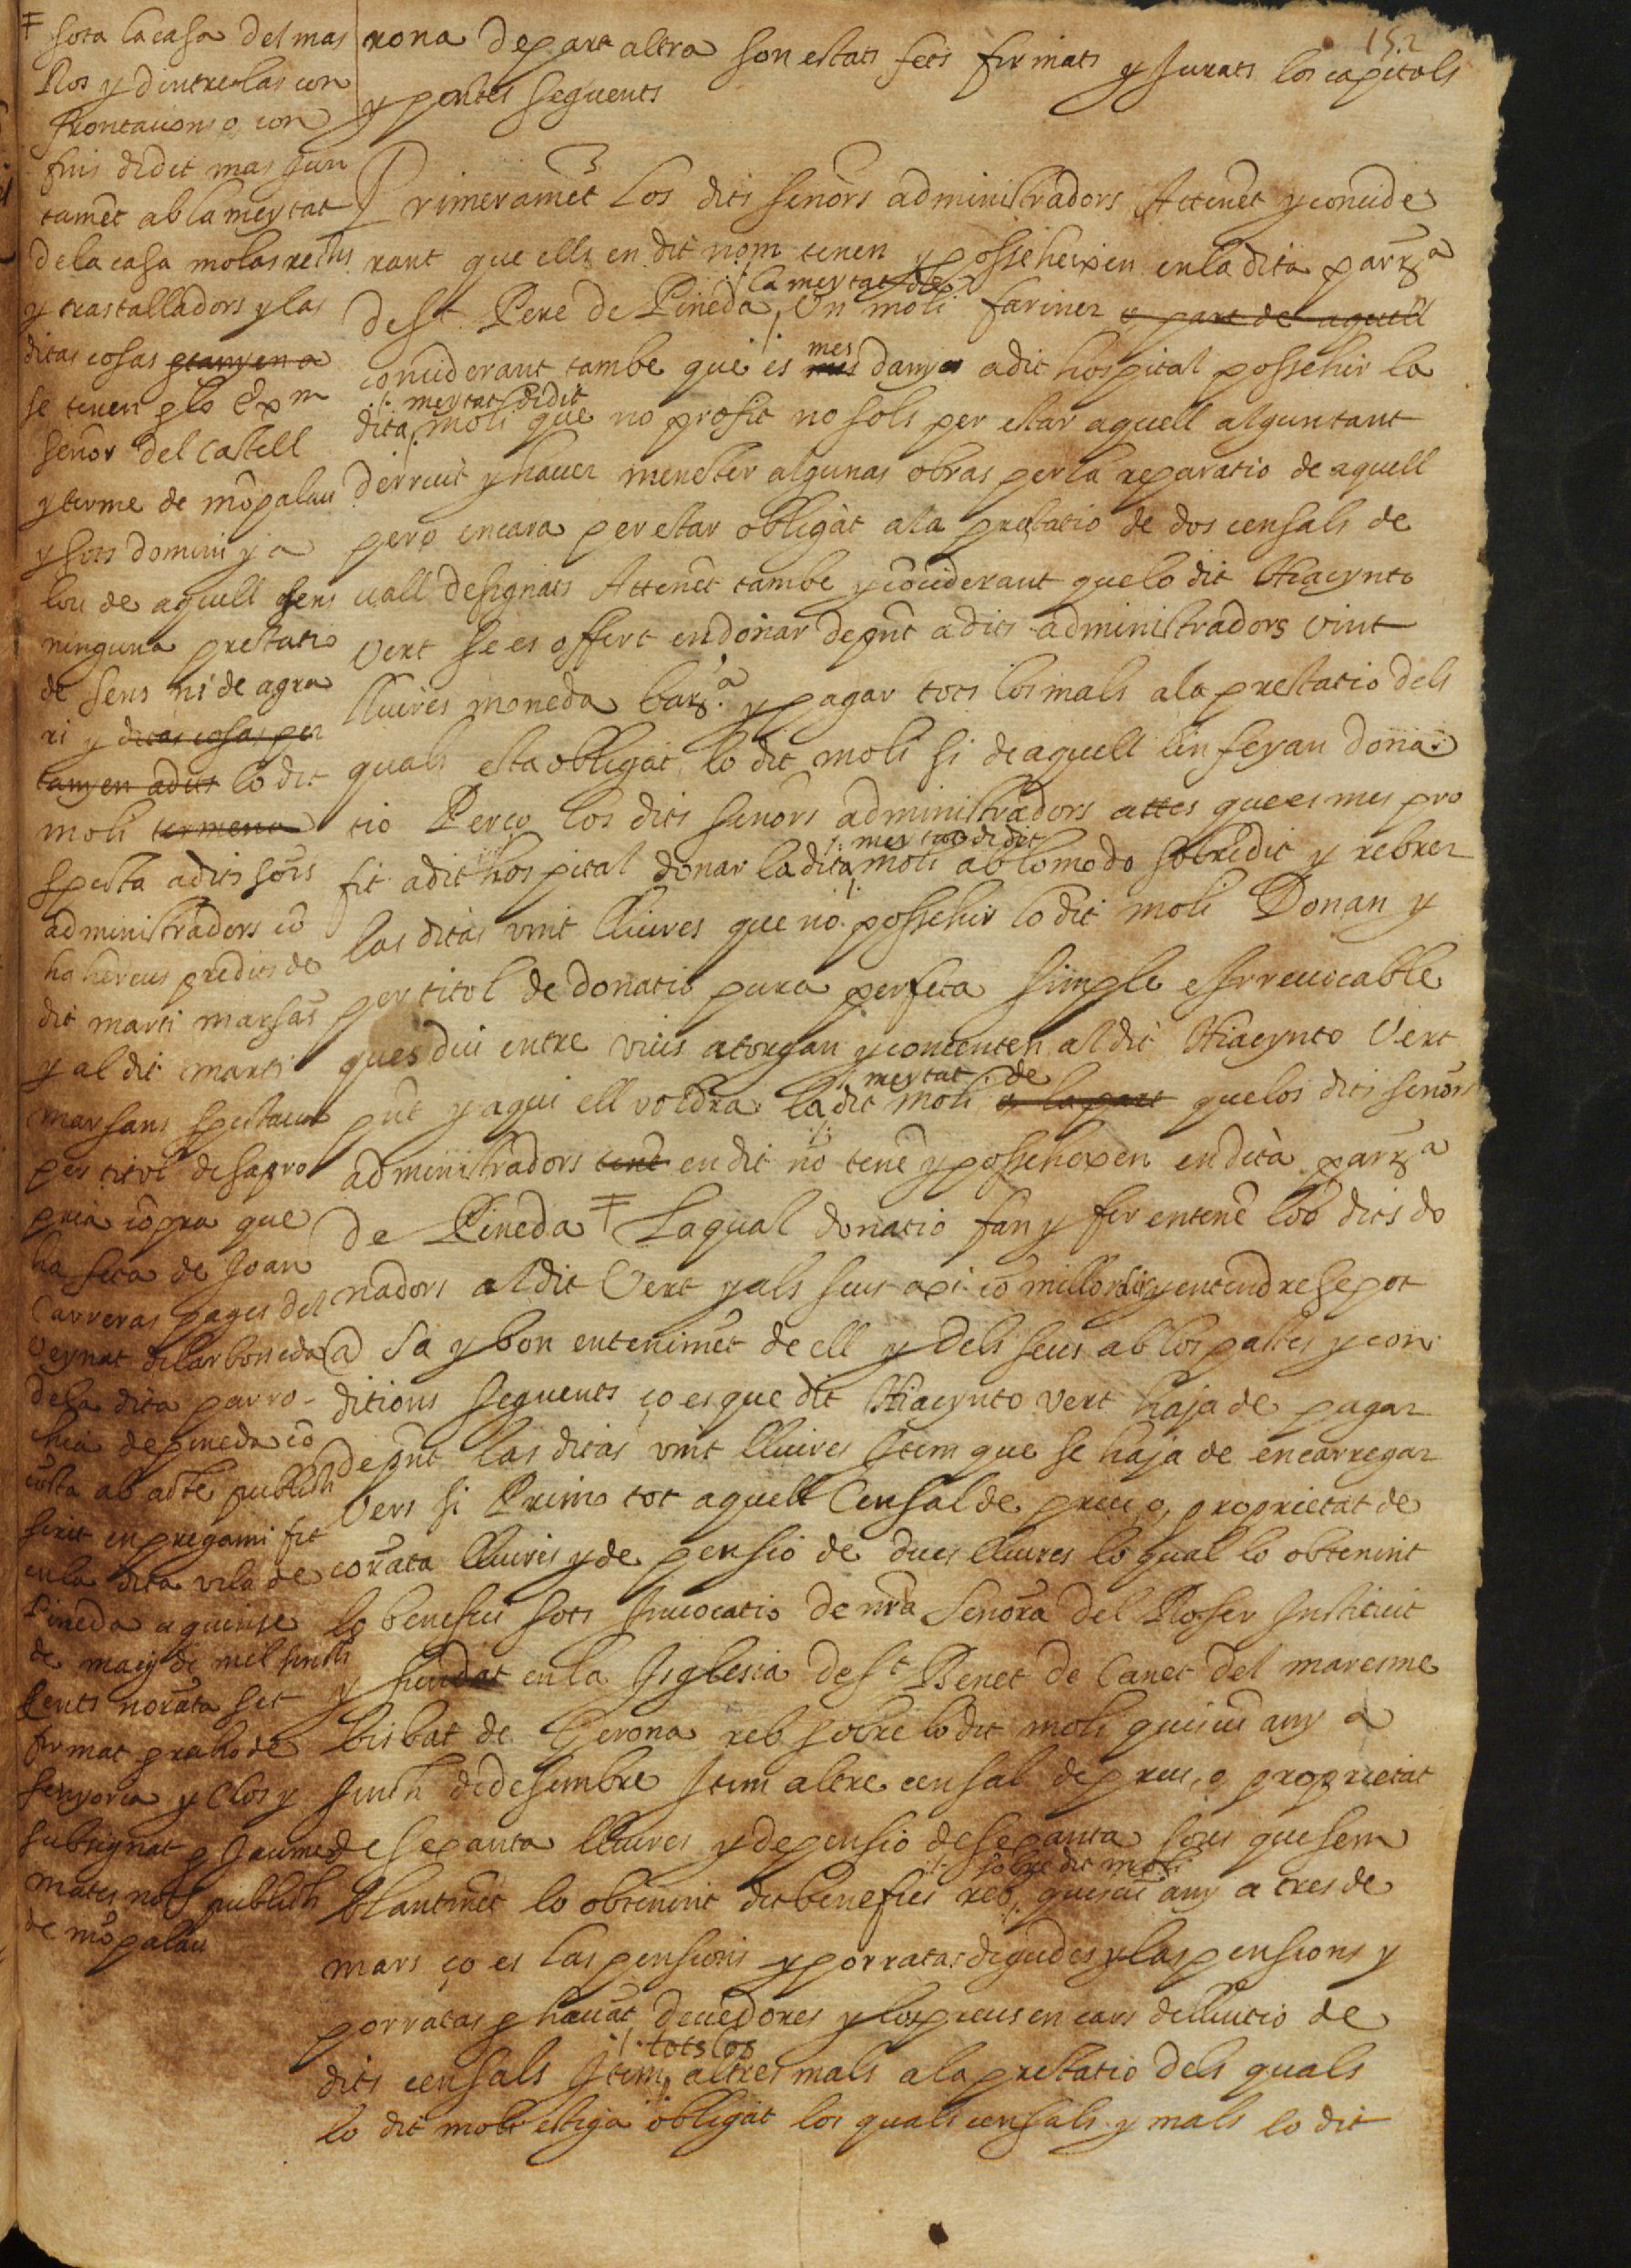 152
rona de part altra son estats fets firmats y Jurats los capitols
y pactes seguents
Primerament Los dits señors administradors Attenet y concide
rant que ells en dit nom tenen y posseheixen en la dita parra
de St Pere de Pineda la meytat de Un moli fariner y part de aquell
conciderant tambe que es mes dany a dit hospital possehir la
dita meytat di dit moli que no profit no sols per estar aquell algun tant
derruit y hauer menester algunas obras per la reparatio de aquell
pero encara per estar obligat a la prestatio de dos censals de
uall designats Attenet tambe y conciderant que lo dit Hiacynto
Vert se es offert en donar de pnt a dits administradors vint
lliures moneda bar.a y pagar tots los mals a la prestatio dels
quals esta obligat lo dit moli si de aquell lin feyan dona
tio Perço los dits señors administradors attes que es mes pro
fit a dit hospital donar la dita meytat di dit moli ab lo modo sobredit y rebrer
las ditas vint lliures que no possehir lo dit moli Donan y
per titol de donatio pura perfeta simple e Irreuocable
ques diu entre vius atorgan y concenten al dit Hiacynto Vert
pnt y a qui ell voldra la dit meytat de moli o la part que los dits señors
administradors tent en dit no tene y possehexen en dita parra
de Pineda Ŧ Laqual donatio fan y fer entene los dits do
nadors al dit Vert y als seus axi co millor dir y entendre se pot
a sa y bon enteniment de ell y dels seus ab los pactes y con
ditions seguents ço es que dit Hiacynto Vert haja de pagar
de pnt las ditas vint lliures Item que se haja de encarregar
vers si Primo tot aquell Censal de preu o, proprietat de
coranta lliures y de pensio de dues lliures lo qual lo obtenint
lo benefici sots Inuocatio de nra Señora del Roser Instituit
y fundat en la Isglesia de St Benet de Canet del maresme
bisbat de Gerona reb sobre lo dit moli quiscu any a
sinch de desembre Item altre censal de preu, o proprietat
de sexanta lliures y de pensio de sexanta sous que sem
blantmet lo obtenint dit benefici reb sobre dit moli quiscu any a tres de
mars ço es las pensions y porratas degudes y las pensions y
porratas p hauat deuedores y los preus en cars de lluitio de
dits censals Item tots los altres mals a la prestatio dels quals
lo dit moli estiga obligat los quals censals y mals lo dit
Ŧ sota la casa del mas
Ros y dintre las con
frontacions o, con
fins di dit mas jun
tamet ab la meytat
de la casa molas rechs
y trastalladors y las
ditas cosas
se tenen p lo Exm
señor del Castell
y terme de mõpalau
y sots domini y a
lou de aquell sens
ninguna prestatio
de sens ni de agra
ri y ditas cosas per
tanyen a dit lo dit
moli
specta a dits sors
administradors co
ha hereus predits de
dit marti marsas
y al dit marti
marsans spectaua
per titol de sa pro
pria copra que
ha feta de Joan
Carreras pages del
veynat de larboneda
de la dita parro-
chia de pineda co
costa ab acte publich
scrit en pregami fet
en la dita vila de
Pineda a quinse
de maig de mil sinch
cents noranta set
firmat p raho de
senyoria y Clos y
subsignat p Jaume
mates nott publich
de mõpalau